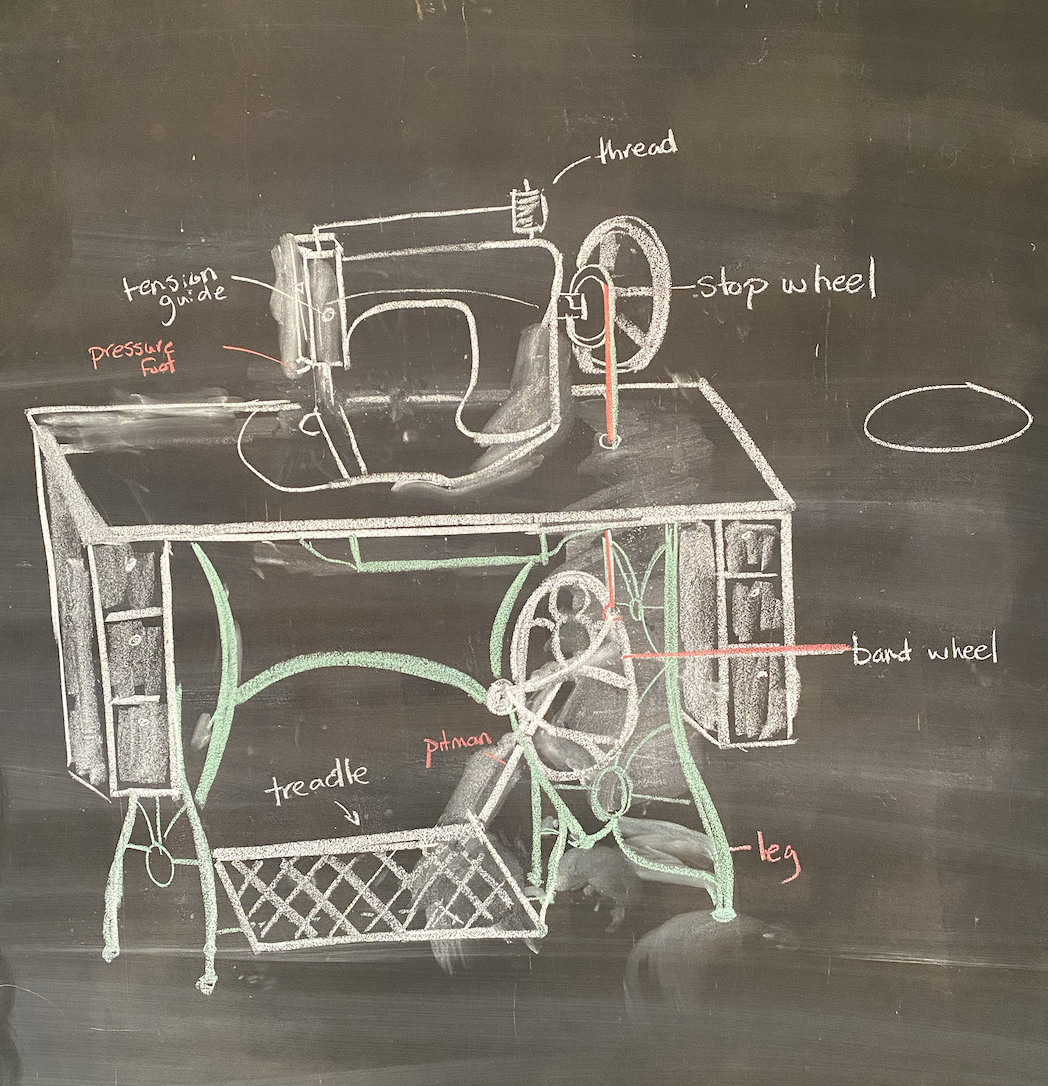 thread
tension
guide
stop wheel
pressure
foot
band wheel
pitman
treadle
leg